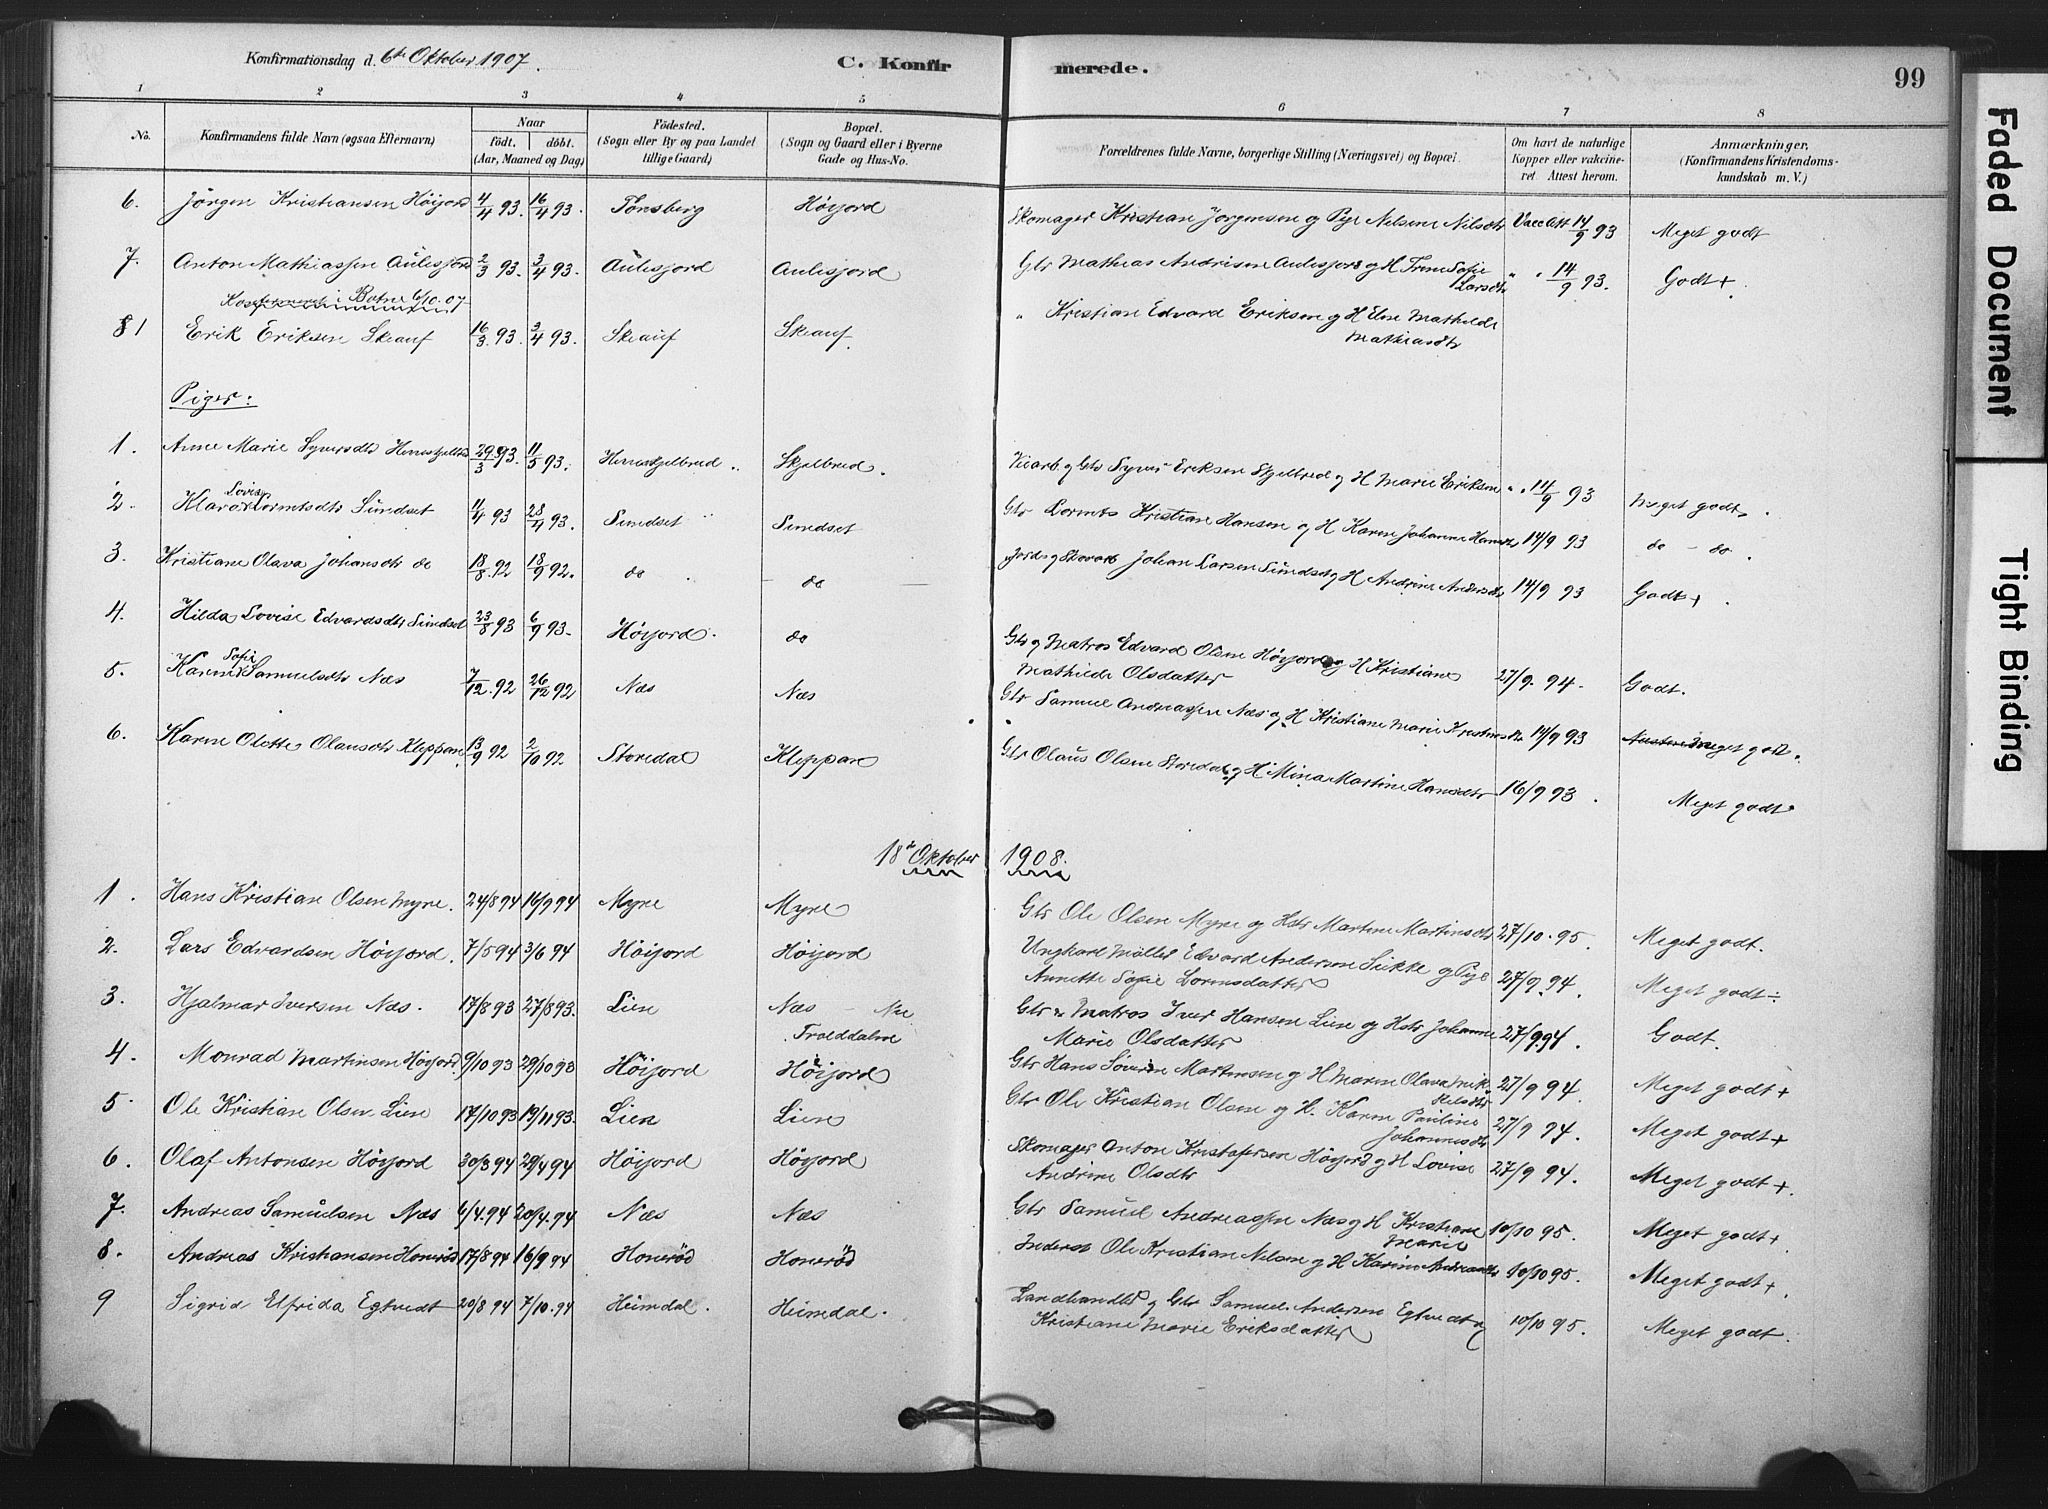 Konfirmationsdag d. 6te Oktober 1907. C. Konfirmerede. 99
1 2 3 4 5 6 7 8
No. Konfirmandens fulde Navn (ogsaa Efternavn) Naar födt. döbt. (Aar, Maaned og Dag) Födested. (Sogn eller By og paa Landet tillige Gaard) Bopæl. (Sogn og Gaard eller i Byerne Gade og Hus-No. Forældrenes fulde Navne, borgerlige Stilling (Næringsvei) og Bopæl. Om havt de naturlige Kopper eller vakcineret. Attest herom. Anmærkninger. (Konfirmandens Kristendomskundskab m. V.)
6. Jörgen Kristiansen Höijord 4/4 93. 16/4 93. Tönsberg Höijord Skomager Kristian Jörgensen og Pige Nilsine Nilsdtr Vacc Att 14/9 93 Meget godt
7. Anton Mathiassen Aulesjord 2/3 93. 3/4 93. Aulesjord Aulesjord Gbr Mathias Andrisen Aulesjord og H Trine Sofie Larsdtr " " 14/9 93. Godt +
Konfirmeret i Botne 6/10.07
8 Erik Eriksen Skauf 16/3 93. 3/4 93. Skauf Skauf. " Kristian Edvard Eriksen og H Else Mathilde Mathiasdtr
Piger:
1. Anne Marie Syversdtr 29/3 93. 11/5 93. Skjelbred. og Gbr Syver Eriksen Skjelbred og H Marie Eriksen " " 14/9 93 Meget godt.
2. Klara Lovise Lorentsdtr Sundset 1/4 93 28/4 93. Sundset Sundset Gbr Lorents Kristian Hansen og H Karen Johanne Hansdtr 14/9 93 do - do.
3. Kristiane Olava Johansdtr do 18/8 92 18/9 92. do - do Johan Larsen Sundset og H Andrine Andersdtr 14/9 93 Godt +.
4. Hilda Lovise Edvardsdtr Sundset 23/8 93 6/9 93. Höijord. do Gbr og Matros Edvard Olsen Höijord og H Kristiane Mathilde Olsdatter 27/9. 94. Godt.
5. Karen Sofie Samuelsdtr Næs 7/12 92 26/12 92 Næs Næs Gbr Samuel Andreassen Næs og H Kristiane Marie 14/9 93 Meget godt.
6. Karen Olette Olausdtr Kleppan 13/9 92 2/10 92 Storedal Kleppan Gbr Olaus Olsen Storedal og H Mina Martine Hansdtr 16/9 93. Meget godt
18de Oktober 1908.
1. Hans Kristian Olsen Myre. 24/8 94 16/9 94 Myre Myre Gbr Ole Olsen Myre og Hstr Martine Martinsdtr 27/10.95. Meget godt.
2. Lars Edvardsen Höijord. 7/5 94 3/6 94 Höijord Höijord Ungkarl Möller Edvard Andersen og Pige Annette Sofie Lorensdatter 27/9.94. Meget godt ÷
3. Hjalmar Iversen Næs. 17/8 93 27/8 93. Lien Næs - Nu Trolddalen Gbr & Matros Iver Hansen Lien og Hstr Johanne Marie Olsdatter 27/9.94. Godt.
4. Monrad Martinsen Höijord. 9/10 93 29/10 93 Höijord Höijord Gbr Hans Martinsen og H Maren Olava Mikkelsdtr 27/9 94. Meget godt +
5 Ole Kristian Olsen Lien 17/10 93 19/11 93. Lien Lien Gbr Ole Kristian Olsen og H. Karen Pauline Johannesdtr 27/9 94. Meget godt +
6. Olaf Antonsen Höijord 30/3 94 29/4 94 Höijord Höijord Skomager Anton Kristofersen Höijord og H Lovise Andrine Olsdtr 27/9 94. Meget godt +.
7. Andreas Samuelsen Næs 6/4.94 20/4.94 Næs Næs Gbr Samuel Andreassen Næs og H Kristiane Marie 10/10 95. Meget godt +
8. Andreas Kristiansen Honeröd 17/8 94 16/9 94 Honeröd Honeröd Inderst Ole Kristian Nilsen og H Karine Andreasdtr 10/10 95. Meget godt +.
9 Sigrid Elfrida Egtvedt 20/8 94 7/10.94 Heimdal. Heimdal. Landhandler og Gbr Samuel Andersen Egtvedt og Kristiane Marie Eriksdatter 10/10 95. Meget godt.
Faded Document
Tight Binding